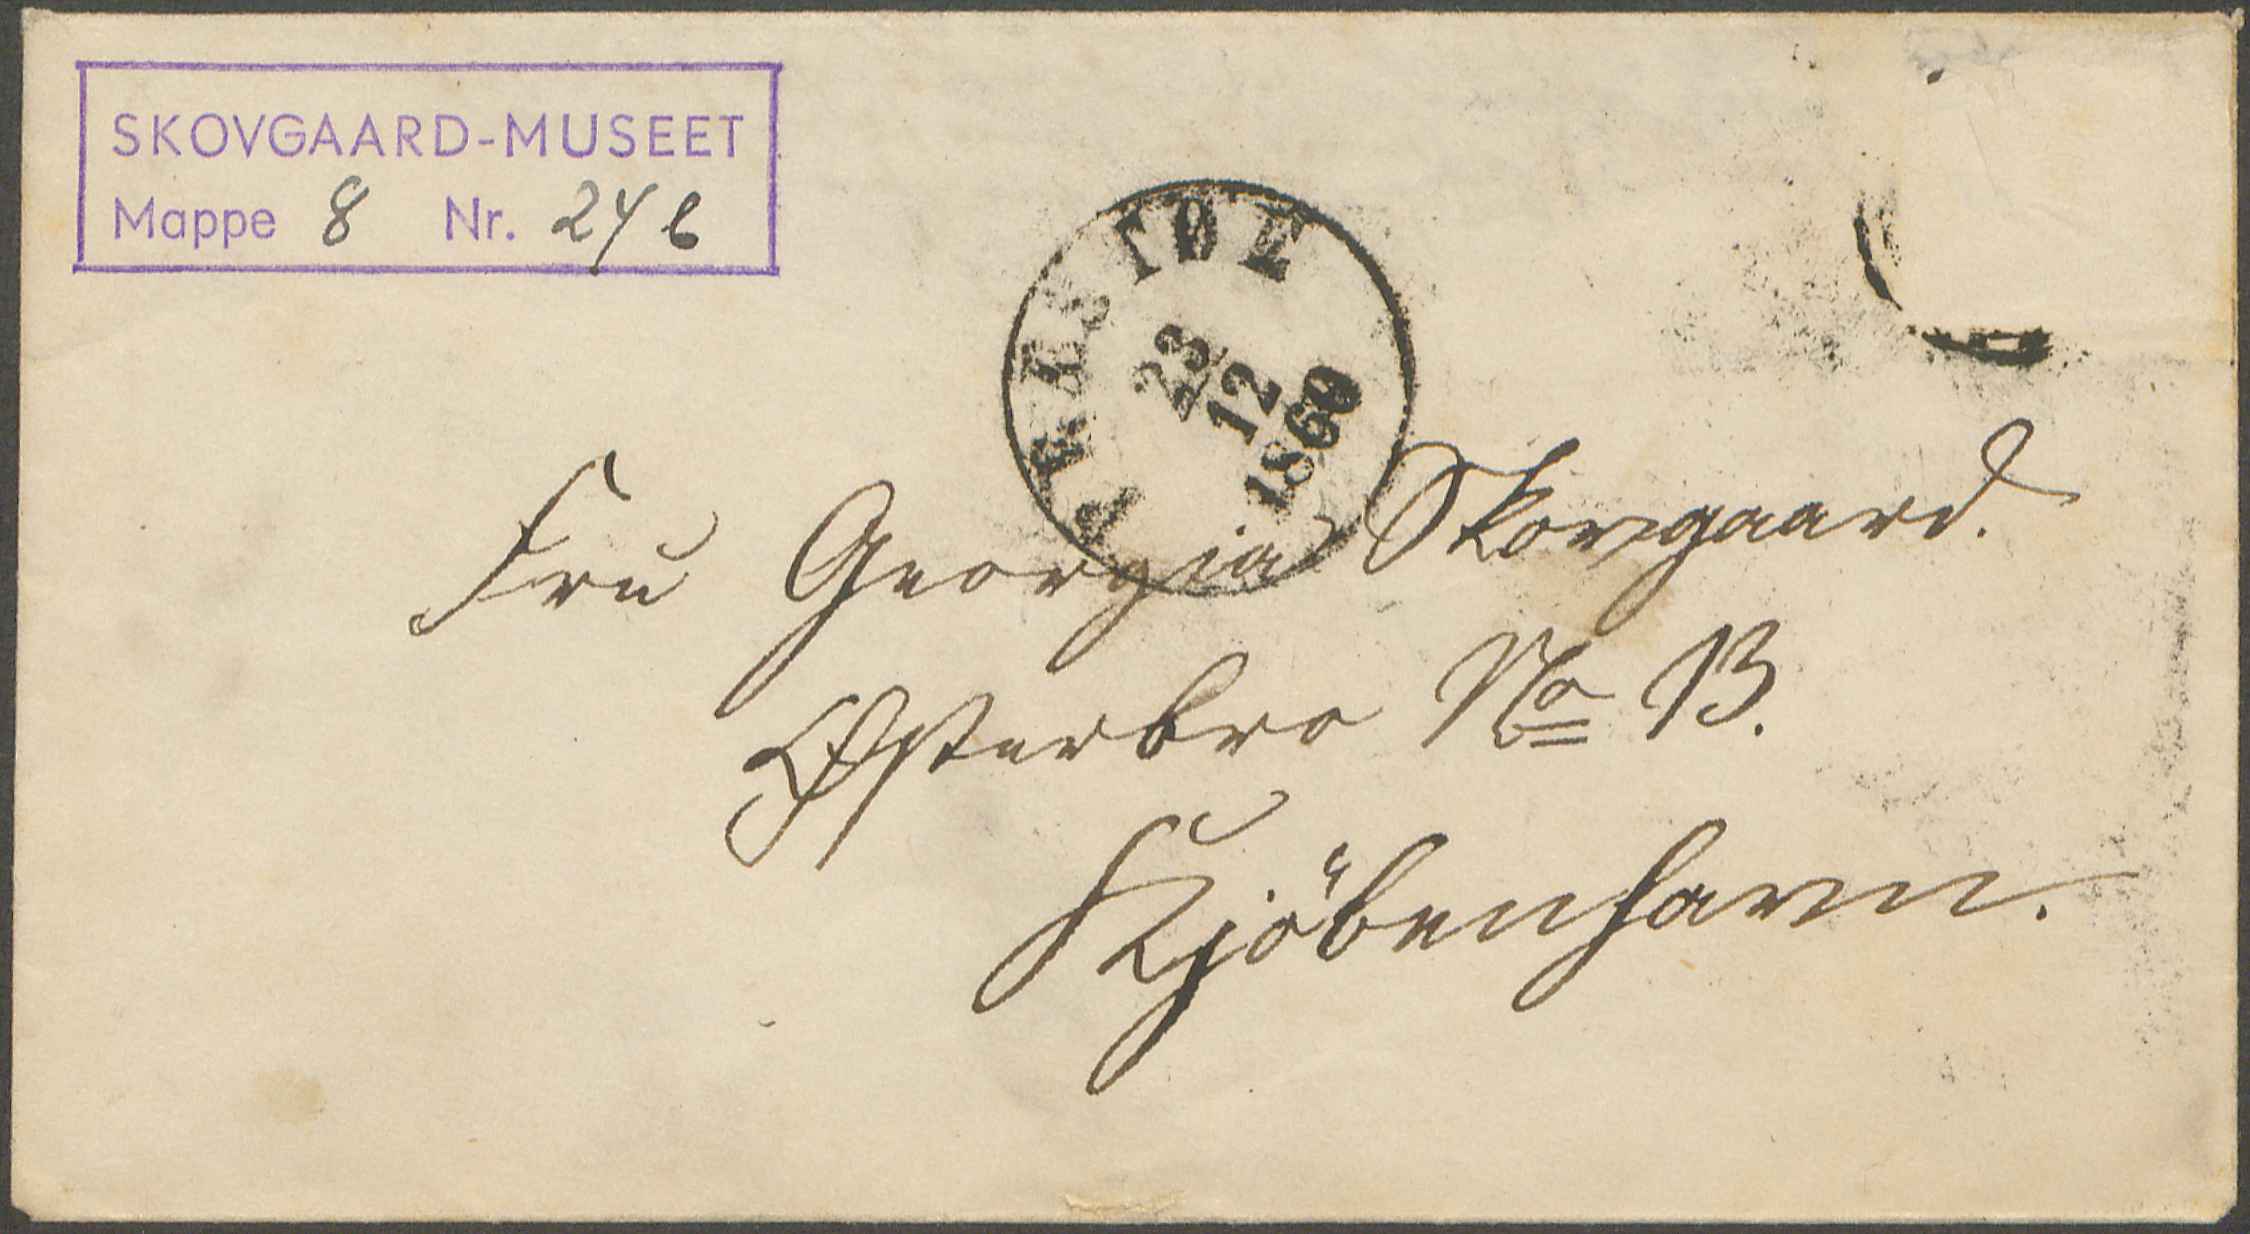 SKOVGAARD-MUSEET
Mappe 8 Nr. 24 b
PRÆSTØE
23
12
1860
Fru Georgia Skovgaard.
Østerbro No 13.
Kjöbenhavn.